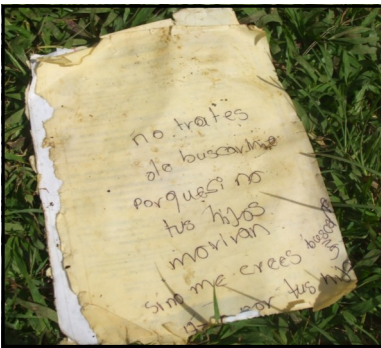 no trates
de buscarme
porqueci no
tus hijos
moriran
sino me crees
por tus